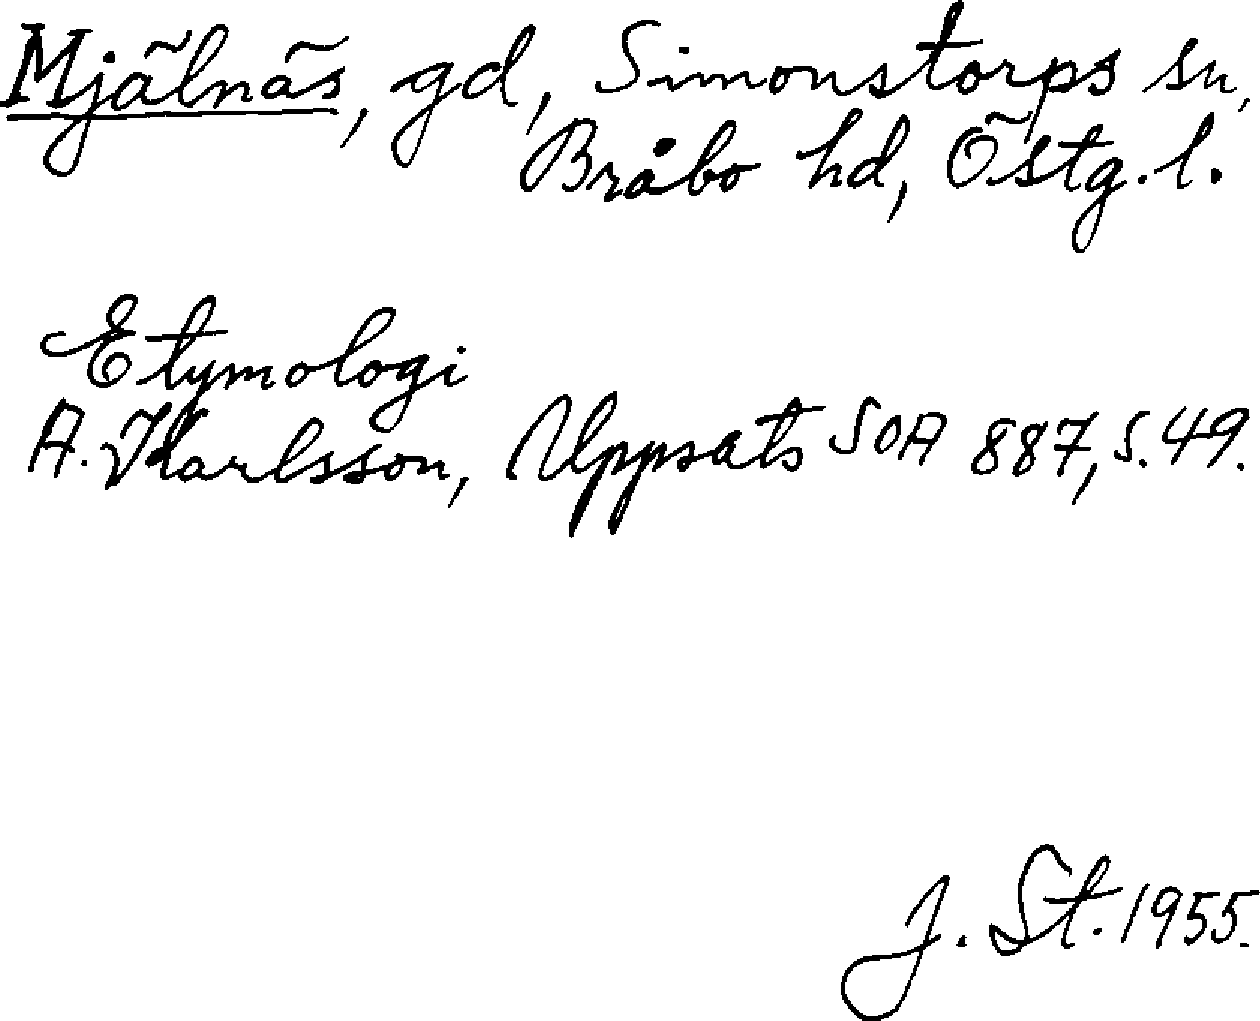 Mjälnäs, gd, Simonstorps sn,
Bråbo hd, Östg.l.
Etymologi
A. Karlsson, Uppsats SOA 887, s. 49.
J. St. 1955.